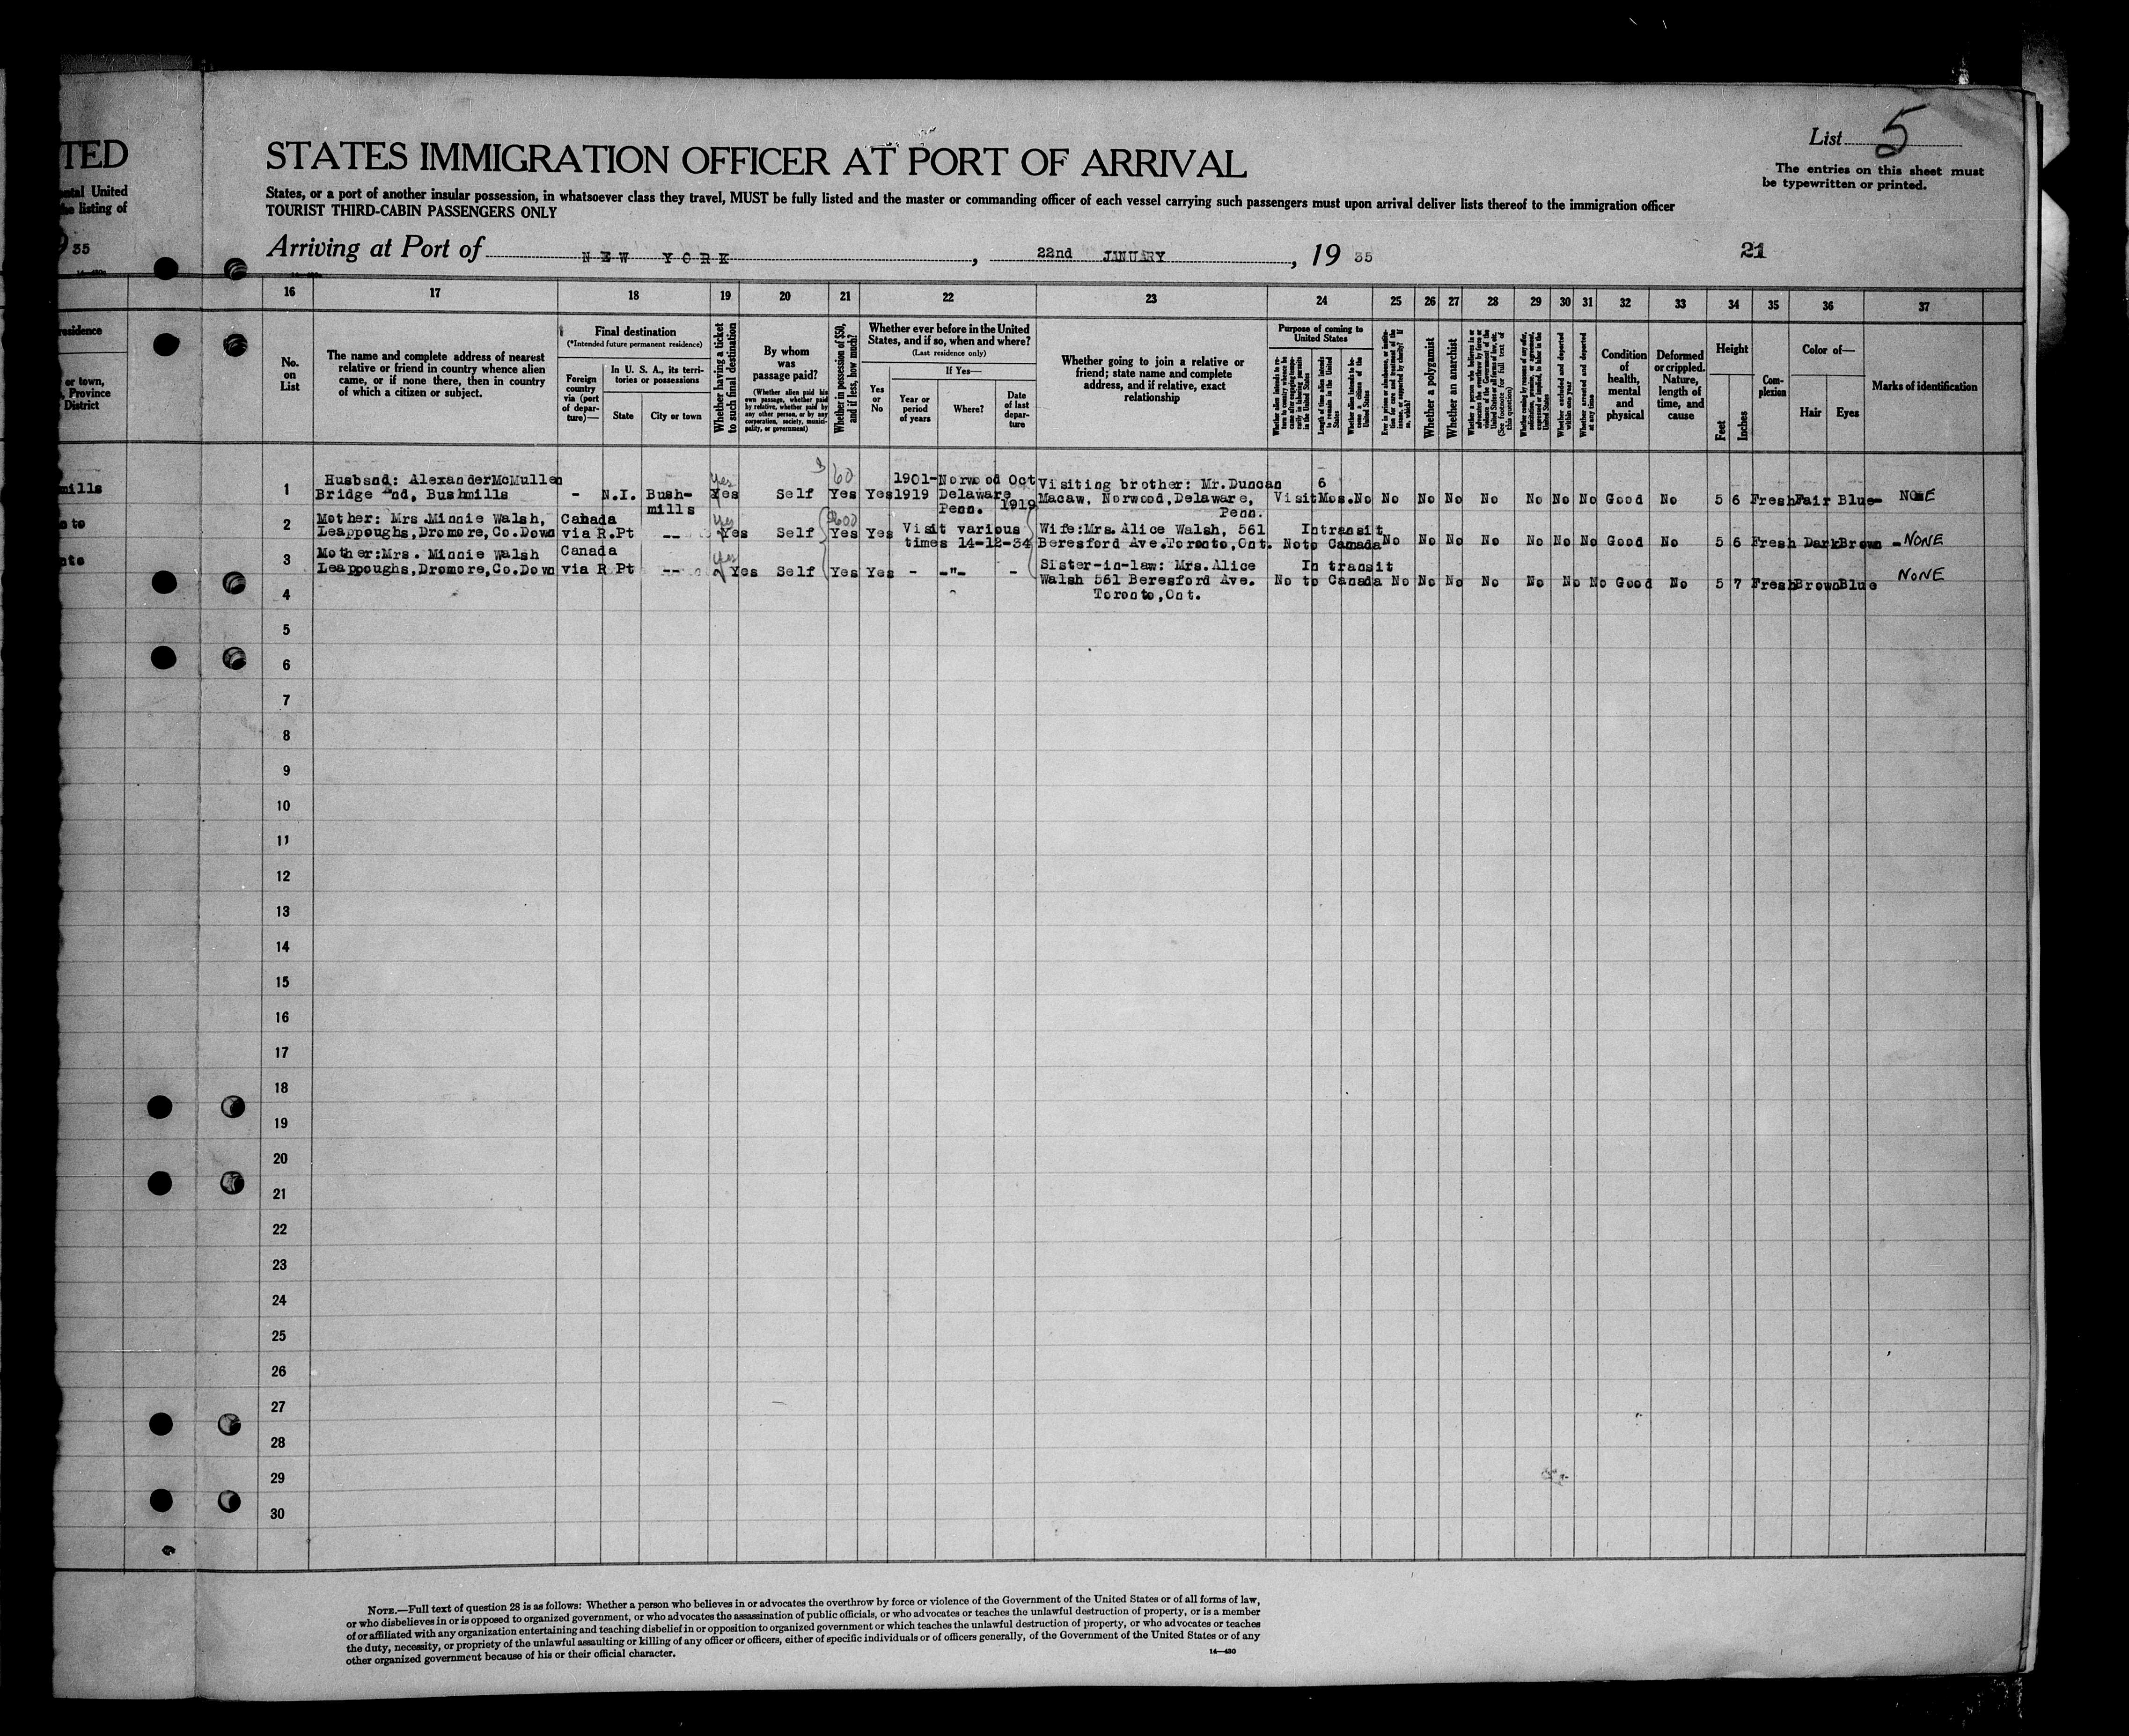 TED
STATES IMMIGRATION OFFICER AT PORT OF ARRIVAL
List 5
The entries on this sheet must
be typewritten or printed.
ental United
the listing of
States, or a port of another insular possession, in whatsoever class they travel, MUST be fully listed and the master or commanding officer of each vessel carrying such passengers must upon arrival deliver lists thereof to the immigration officer
TOURIST THIRD-CABIN PASSENGERS ONLY
9 35
Arriving at Port of NEW YORK, 22nd JANUARY, 19 35
21
16 17 18 19 20 21 22 23 24 25 26 27 28 29 30 31 32 33 34 35 36 37
residence
or town,
, Province
District
No.
on
List
The name and complete address of nearest
relative or friend in country whence alien
came, or if none there, then in country
of which a citizen or subject.
Final destination
(*Intended future permanent residence)
Foreign
country
via (port
of depar-
ture)—
In U. S. A., its terri-
tories or possessions
State
City or town
Whether having a ticket
to such final destination
By whom
was
passage paid?
(Whether alien paid his
own passage, whether paid
by relative, whether paid by
any other person, or by any
corporation, society, munici-
pality, or government)
Whether in possession of $50,
and if less, how much?
Whether ever before in the United
States, and if so, when and where?
(Last residence only)
Yes
or
No
If Yes—
Year or
period
of years
Where?
Date
of last
depar-
ture
Whether going to join a relative or
friend; state name and complete
address, and if relative, exact
relationship
Purpose of coming to
United States
Whether alien intends to re-
turn to country whence he
came after engaging tempo-
rarily in laboring pursuits
in the United States
Length of time alien intends
to remain in the United
States
Whether alien intends to be-
come a citizen of the
United States
Ever in prison or almshouse, or institu-
tion for care and treatment of the
insane, or supported by charity? If
so, which?
Whether a polygamist
Whether an anarchist
Whether a person who believes in or
advocates the overthrow by force or
violence of the Government of the
United States or all forms of law, etc.
(See footnote for full text of
this question)
Whether coming by reason of any offer,
solicitation, promise, or agreement,
expressed or implied, to labor in the
United States
Whether excluded and deported
within one year
Whether arrested and deported
at any time
Condition
of
health,
mental
and
physical
Deformed
or crippled.
Nature,
length of
time, and
cause
Height
Feet
Inches
Com-
plexion
Color of—
Hair
Eyes
Marks of identification
mills
1 Husband: AlexanderMcMullen
Bridge End, Bushmills - N.I. Bush-
mills Yes Yes Self 60 Yes Yes 1901-
1919 Norwood
Delaware
Penn. Oct
1919 Visiting brother: Mr.Duncan
Macaw, Norwood,Delaware,
Penn. Visit 6
Mos. No No No No No No No No Good No 5 6 Fresh Fair Blue- NONE
2 Mother: Mrs.Minnie Walsh,
Leappoughs,Dromore,Co.Down Canada
via R.Pt -- Yes Yes Self Yes Yes Visit various
times 14-12-34 Wife:Mrs.Alice Walsh, 561
Beresford Ave.Toronto,Ont. Intransit
Noto Canada No No No No No No No Good No 5 6 Fresh Dark Brown - NONE
3 Mother:Mrs. Minnie Walsh
Leappoughs,Dromore,Co.Down Canada
via R Pt -- Yes Yes Self Yes Yes - -"- - Sister-in-law: Mrs.Alice
Walsh 561 Beresford Ave.
Toronto,Ont. In transit
No to Canada No No No No No No No Good No 5 7 Fresh Brown Blue NONE
4
5
6
7
8
9
10
11
12
13
14
15
16
17
18
19
20
21
22
23
24
25
26
27
28
29
30
NOTE.—Full text of question 28 is as follows: Whether a person who believes in or advocates the overthrow by force or violence of the Government of the United States or of all forms of law,
or who disbelieves in or is opposed to organized government, or who advocates the assassination of public officials, or who advocates or teaches the unlawful destruction of property, or is a member
of or affiliated with any organization entertaining and teaching disbelief in or opposition to organized government or which teaches the unlawful destruction of property, or who advocates or teaches
the duty, necessity, or propriety of the unlawful assaulting or killing of any officer or officers, either of specific individuals or of officers generally, of the Government of the United States or of any
other organized government because of his or their official character.
14—430